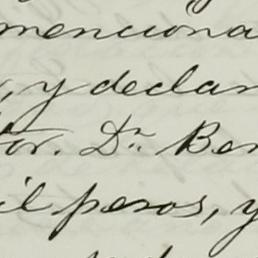 menciona
, y declar
tor. Dr. Ber
il pesos, y